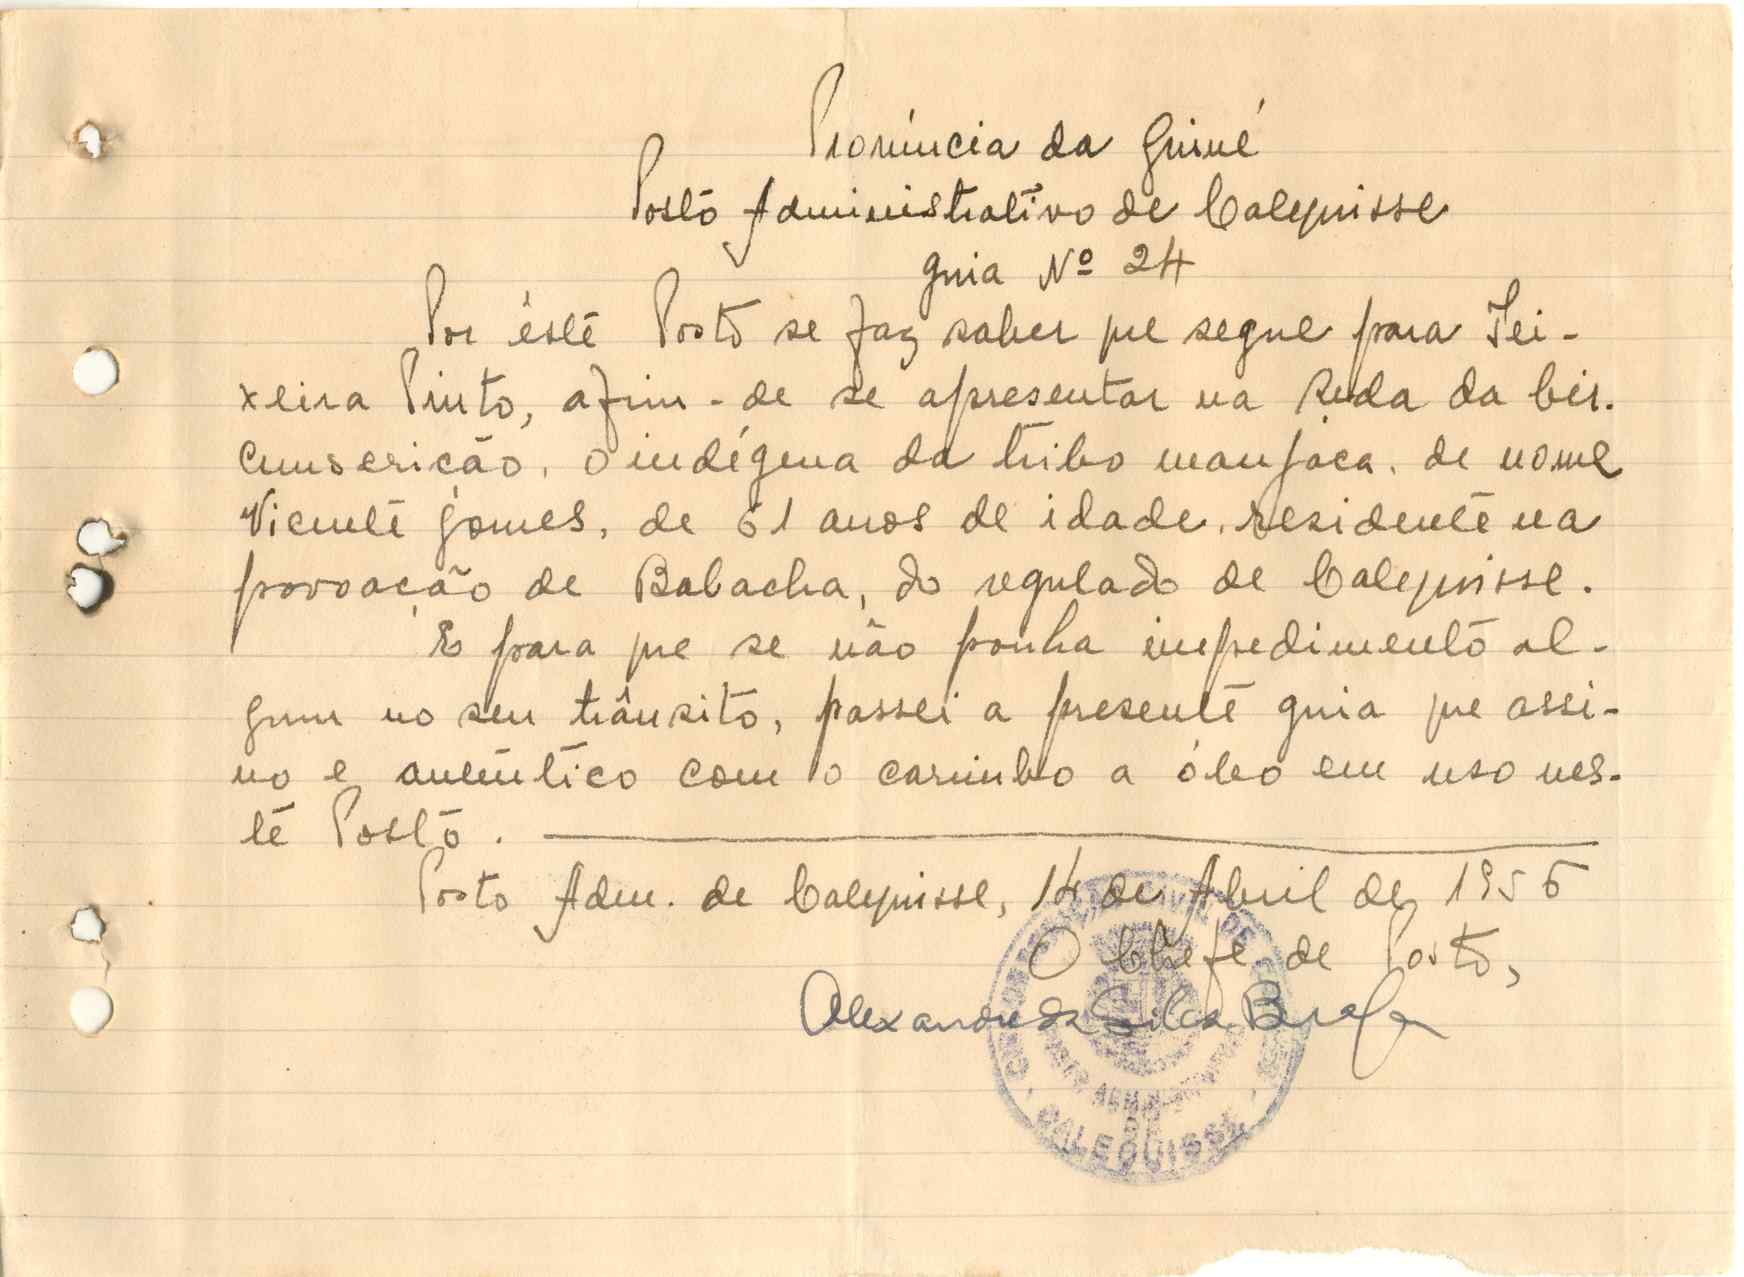 Província da Guiné
Posto Administrativo de Calequisse
Guia Nº 24
Por êste Posto se faz saber que segue para Tei-
xeira Pinto, afim-de se apresentar na Séda da Cir-
cunscrição, o indígena da tribo manjaca, de nome
Vicente Gomes, de 61 anos de idade, residente na
povoação de Babacha, do regulado de Calequisse.
E para que se não ponha impedimento al-
gum no seu trânsito, passei a presente guia que assi-
no e autêntico com o carimbo a óleo em uso nes-
te Posto.
Posto Adm. de Calequisse, 14 de Abril de 1956
O Chefe de Posto,
Alexandre da Silva Braga
CALEQUISSE